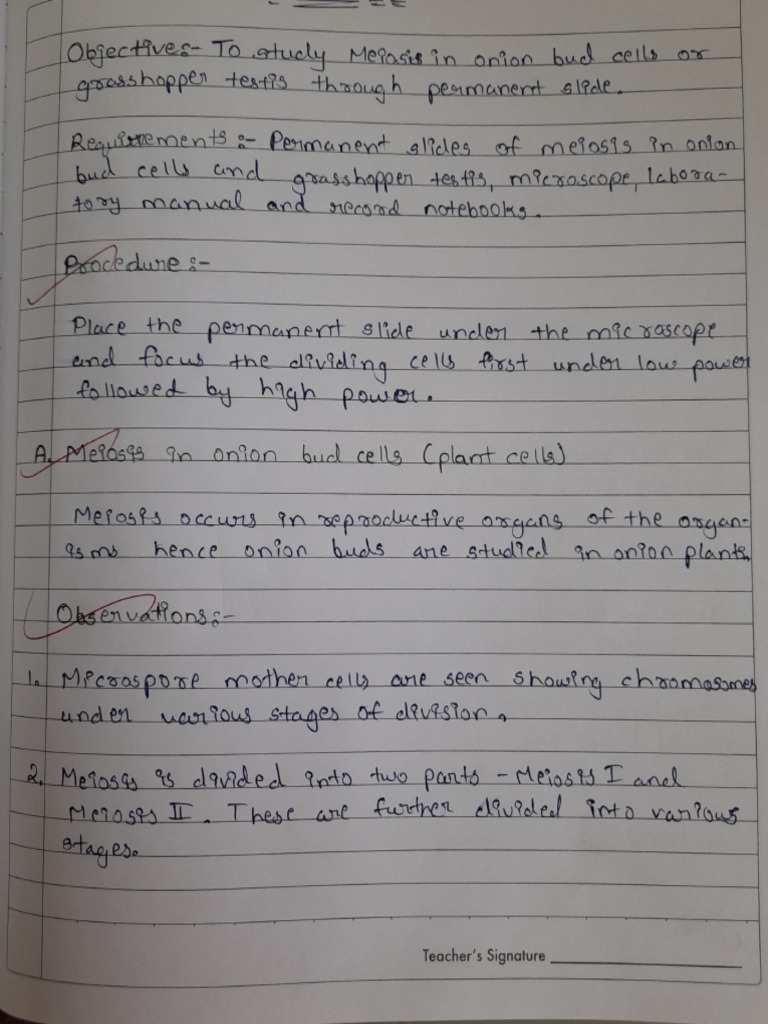 Objectives:- To study Meiosis in onion bud cells or
grasshopper testis through permanent slide.
Requirements:- Permanent slides of meiosis in onion
bud cells and grasshopper testis, microscope, labora-
tory manual and record notebooks.
Procedure:-
Place the permanent slide under the microscope
and focus the dividing cells first under low power
followed by high power.
A. Meiosis in onion bud cells (plant cells)
Meiosis occurs in reproductive organs of the organ-
isms hence onion buds are studied in onion plants.
Observations:-
1. Microspore mother cells are seen showing chromosomes
under various stages of division.
2. Meiosis is divided into two parts - Meiosis I and
Meiosis II. These are further divided into various
stages.
Teacher's Signature